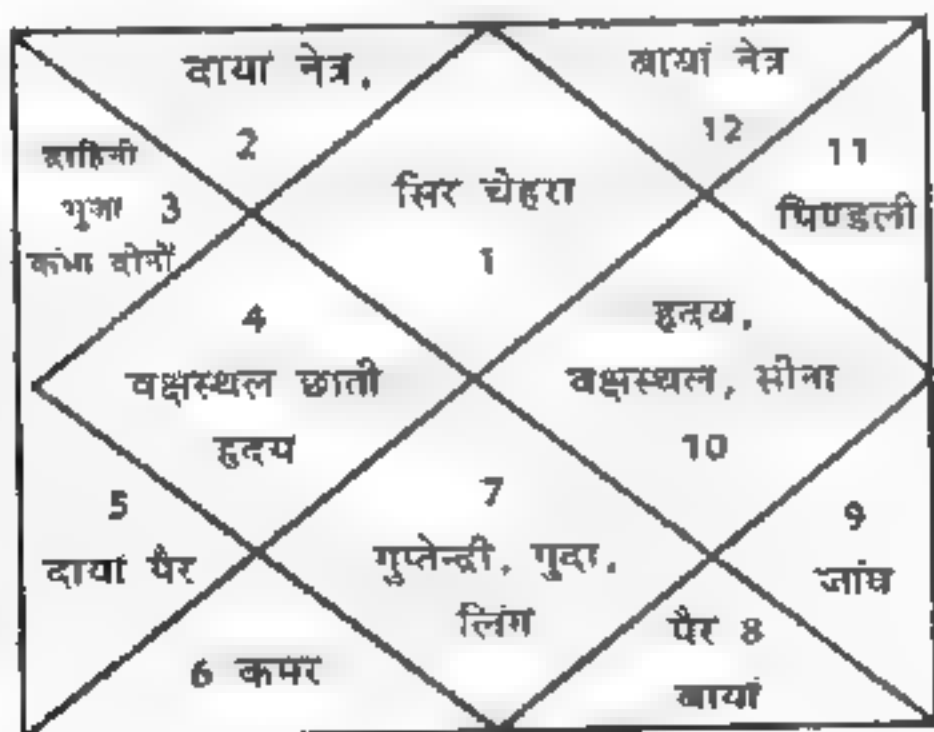 दाया नेत्र.
2
बायां नेत्र
12
11
पिण्डली
दाहिनी
भुजा 3
कंधा दोनों
सिर चेहरा
1
4
वक्षस्थल छाती
हृदय
हृदय,
वक्षस्थल, सीना
10
5
दायां पैर
7
गुप्तेन्द्री. गुदा.
लिंग
9
जांघ
6 कमर
पैर 8
बायां